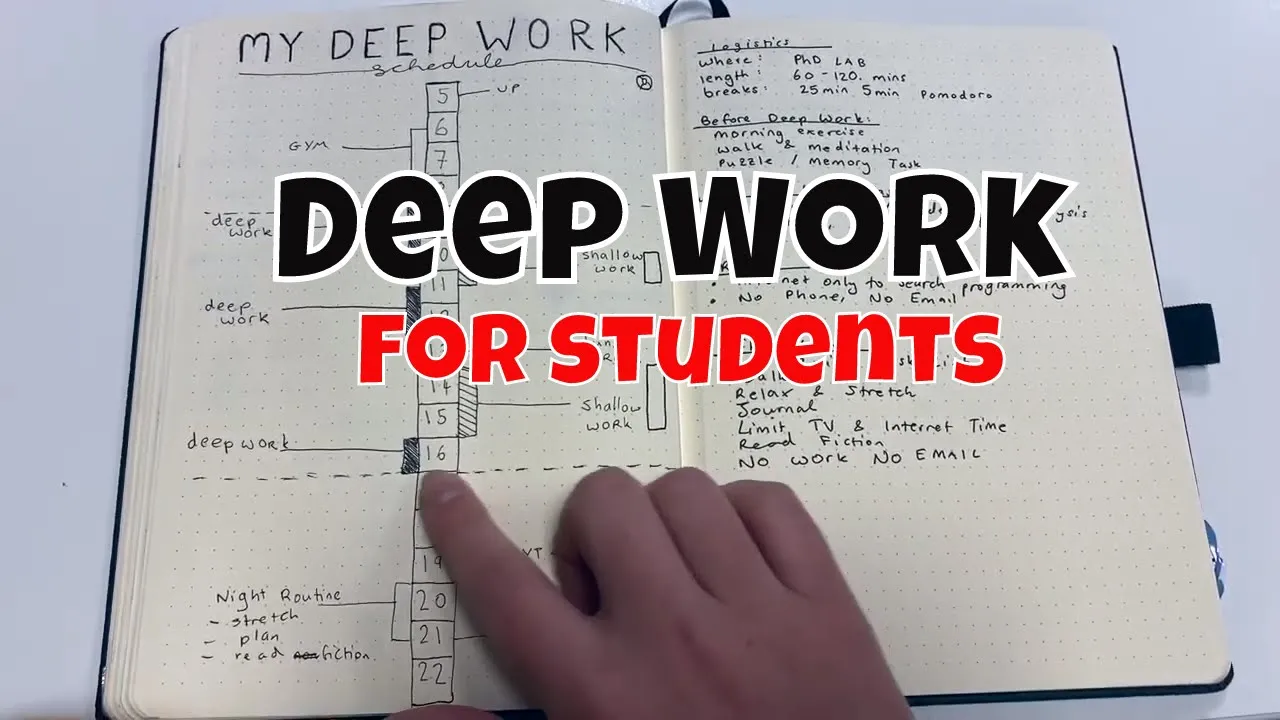 MY DEEP WORK
schedule
5
UP
6
GYM
7
deep
work
10
shallow
work
11
deep
work
14
15
shallow
work
deep work
16
19
YT
Night Routine
20
- stretch
- plan
21
- read fiction.
22
Logistics
where: PhD LAB
length: 60-120. mins
breaks: 25min 5min Pomodoro
Before Deep Work:
morning exercise
walk & meditation
Puzzle / Memory Task
DEEP WORK
FOR STUDENTS
only to search programming
• No Phone, No Email
Relax & Stretch
Journal
Limit TV & Internet Time
Read Fiction
NO WORK NO EMAIL